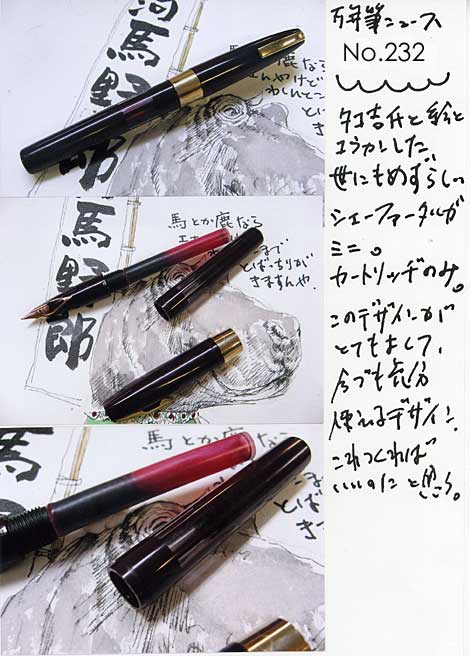 万年筆ニュース
No.232
タコ吉氏と絵と
コラボした、
世にもめずらしい
シェーファータルガ
ミニ。
カートリッヂのみ。
このデザインが
とてもよして、
今でも充分
使えるデザイン。
これつくれば
いいのにと思う。
河馬野郎
馬とか鹿なら
とば
き
馬野郎
馬とか鹿なら
とばっちりが
きますんや。
馬とか鹿な
とば
き